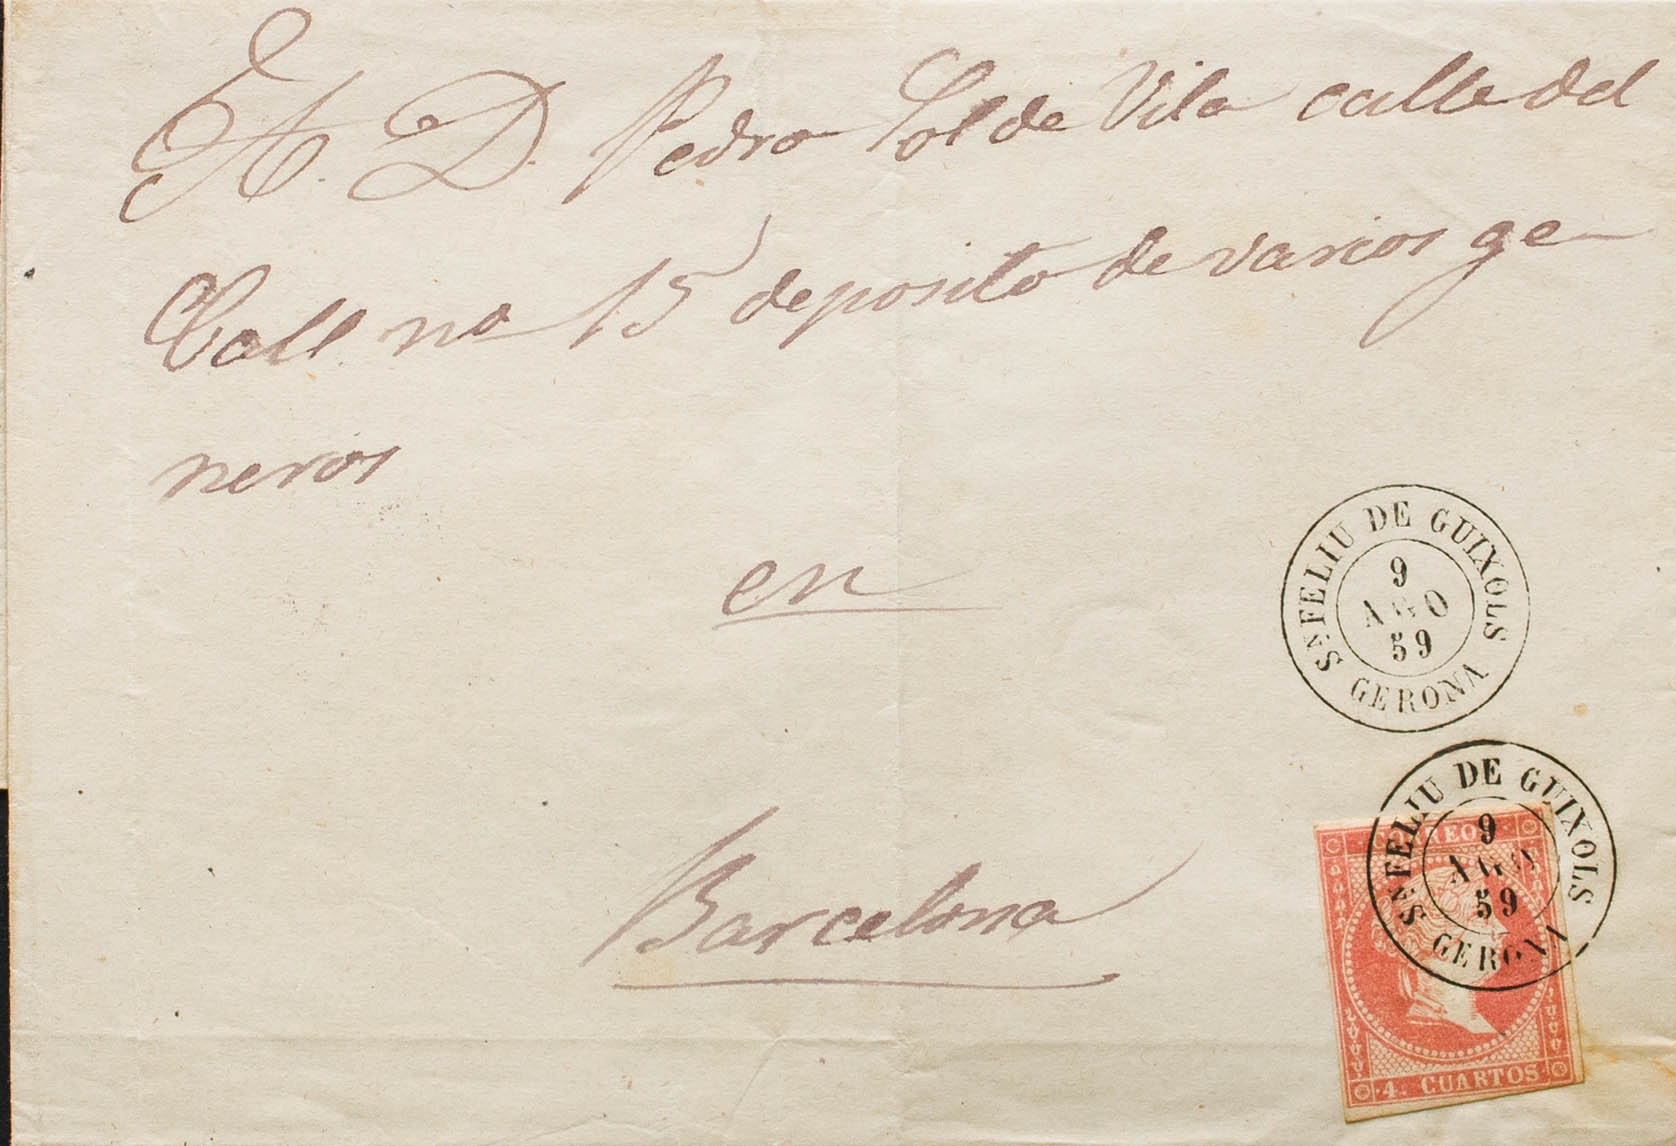 A. D. Pedro Sol de Vila calle del
Call no 15 deposito de varios ge
neros
en
Barcelona
Sn. FELIU DE GUIXOLS
9
AGO
59
GERONA
Sn. FELIU DE GUIXOLS
9
AGO
59
GERONA
CORREOS
4. CUARTOS